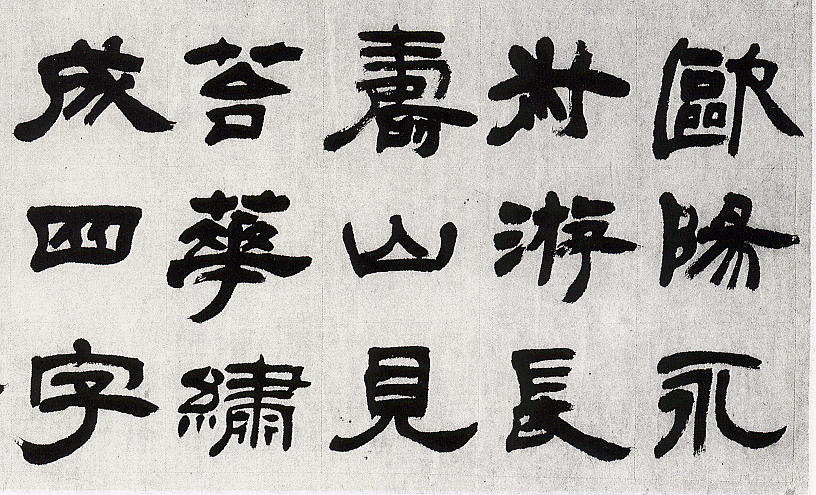 歐陽永
叔游長
壽山見
苔華繡
成四字